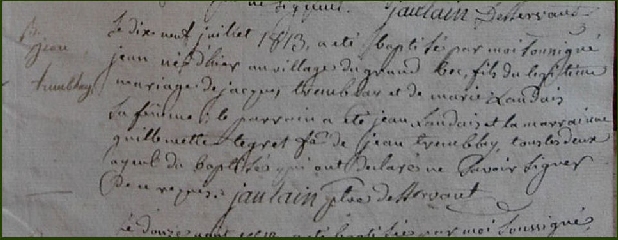 jaulain Desservant
Bt.
jean
tremblay
Le dix neuf juillet 1813, a été baptisé par moi soussigné
jean né d'hier au village du grand bec, fils du legitime
mariage de jacques tremblay et de marie Laudais
sa femme; le parrain a été jean Laudais et la marraine
guillemette legret fe. de jean tremblay, tous les deux
ayeul du baptisés qui ont declaré ne savoir signer
de ce requis. jaulain ptre desservant
Le douze août 1813 a été baptisé par moi soussigné